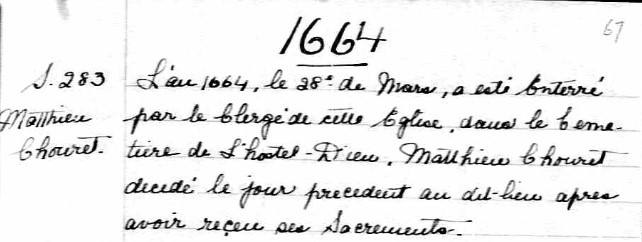 67
1664
S. 283
Matthieu
Chouret.
L'an 1664, le 28e de Mars, a esté Enterré
par le Clergé de cette Eglise, dans le Ceme-
tiere de L'hostel-Dieu, Matthieu Chouret
decedé le jour precedent au dit-lieu apres
avoir reçeu ses Sacrements.